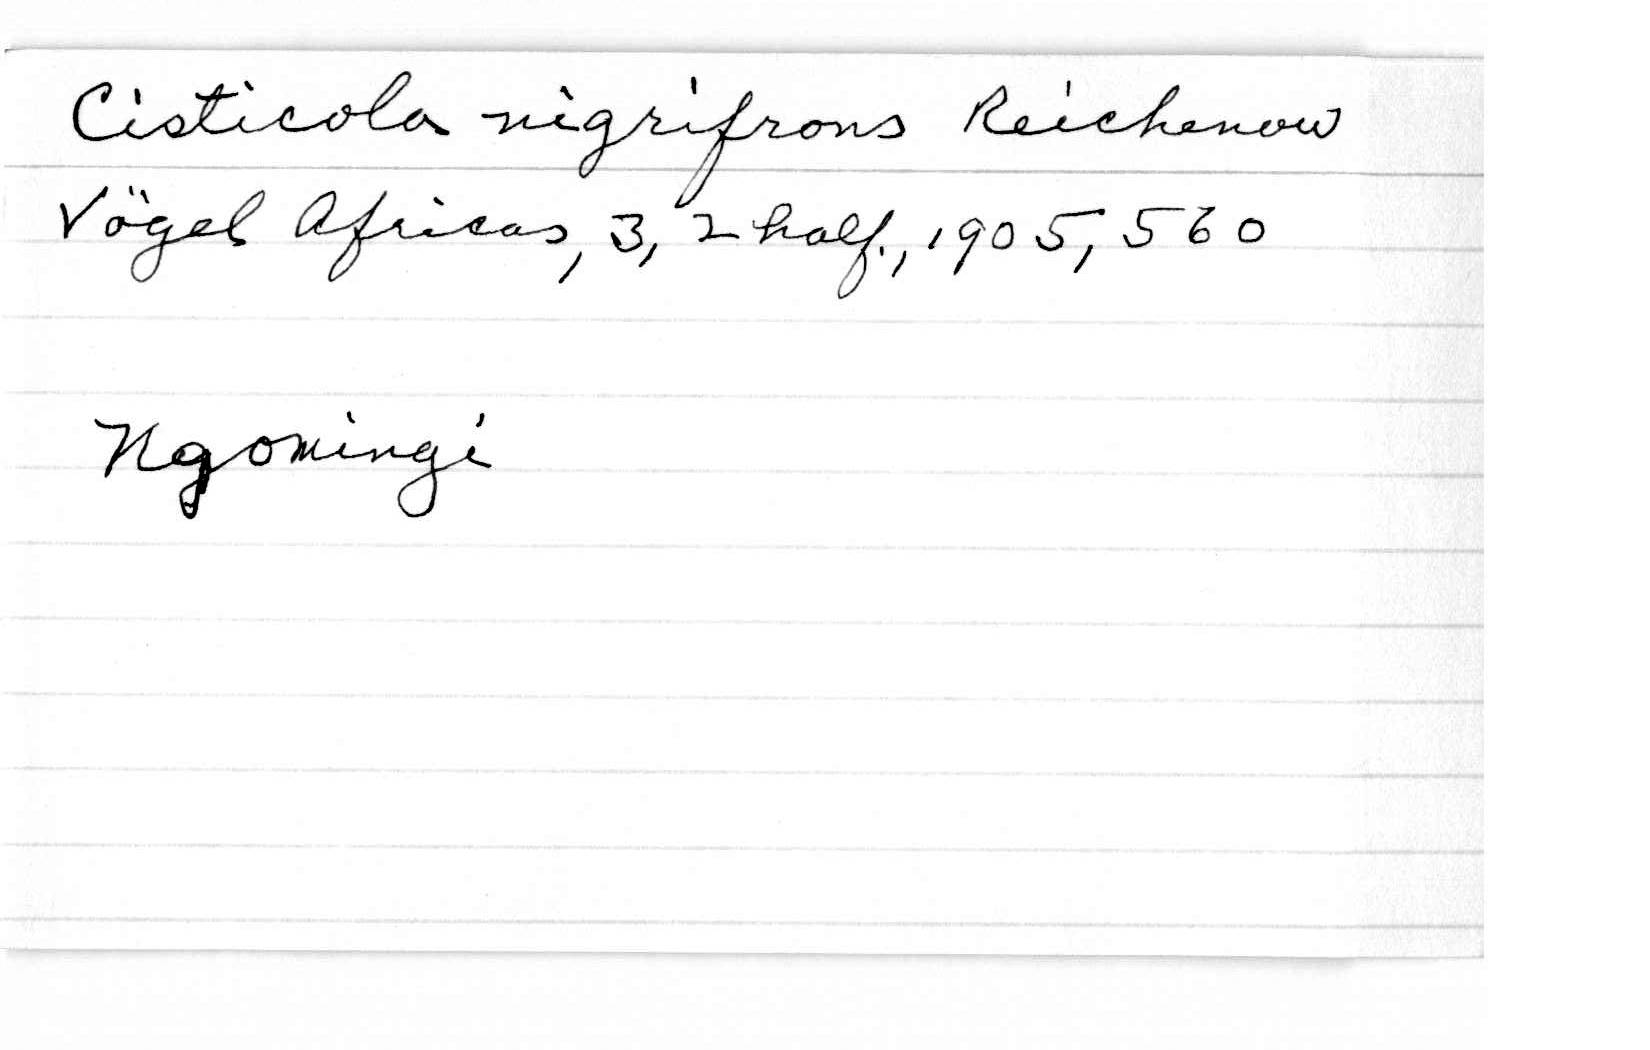 Cisticola nigrifrons Reichenow
Vögel Africas, 3, 2 half., 1905, 560
Ngomingi